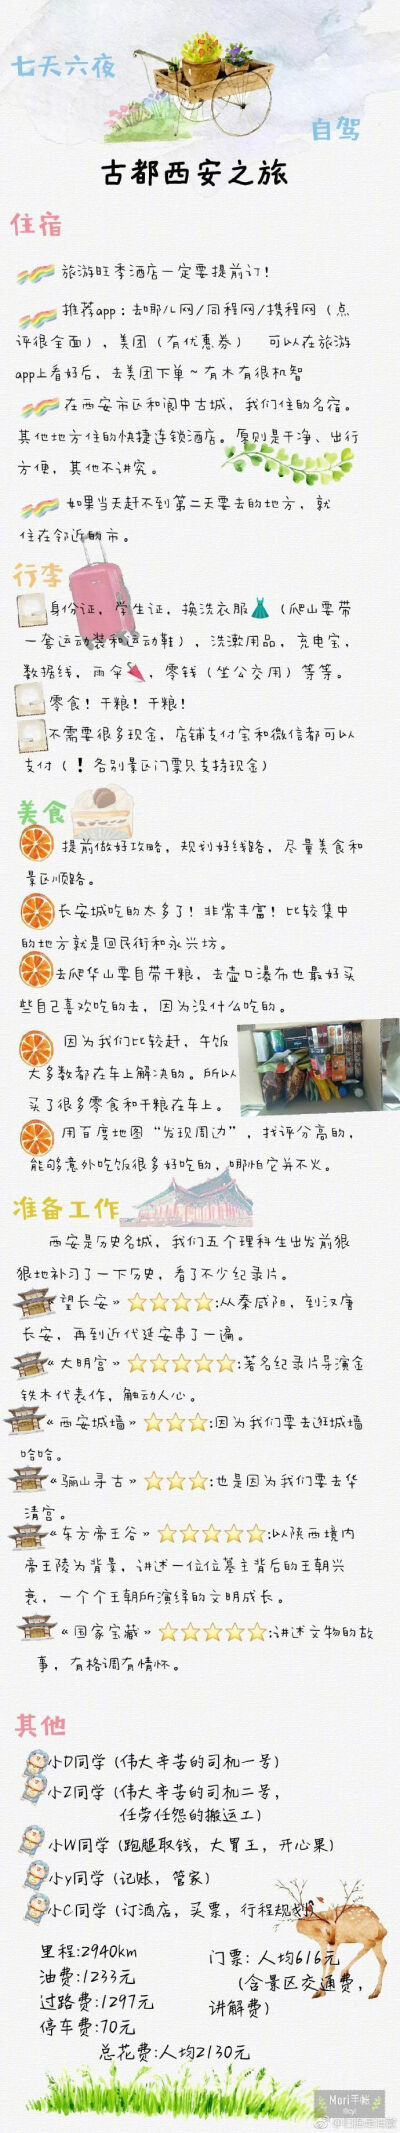 七天六夜
自驾
古都西安之旅
住宿
旅游旺季酒店一定要提前订！
推荐app：去哪儿网/同程网/携程网（点
评很全面），美团（有优惠券） 可以在旅游
app上看好后，去美团下单~有木有很机智
在西安市区和阆中古城，我们住的名宿。
其他地方住的快捷连锁酒店。原则是干净、出行
方便，其他不讲究。
如果当天赶不到第二天要去的地方，就
住在邻近的市。
行李
身份证，学生证，换洗衣服（爬山要带
一套运动装和运动鞋），洗漱用品，充电宝，
数据线，雨伞，零钱（坐公交用）等等。
零食！干粮！干粮！
不需要很多现金，店铺支付宝和微信都可以
支付（！各别景区门票只支持现金）
美食
提前做好攻略，规划好线路，尽量美食和
景区顺路。
长安城吃的太多了！非常丰富！比较集中
的地方就是回民街和永兴坊。
去爬华山要自带干粮，去壶口瀑布也最好买
些自己喜欢吃的去，因为没什么吃的。
因为我们比较赶，午饭
大多数都在车上解决的。所以
买了很多零食和干粮在车上。
用百度地图“发现周边”，找评分高的，
能够意外吃饭很多好吃的，哪怕它并不火。
准备工作
西安是历史名城，我们五个理科生出发前狠
狠地补习了一下历史，看了不少纪录片。
望长安》⭐⭐⭐⭐:从秦咸阳，到汉唐
长安，再到近代延安串了一遍。
《大明宫》⭐⭐⭐⭐⭐:著名纪录片导演金
铁木代表作，触动人心。
《西安城墙》⭐⭐⭐:因为我们要去逛城墙
哈哈。
《骊山寻古》⭐⭐⭐:也是因为我们要去华
清宫。
《东方帝王谷》⭐⭐⭐⭐⭐:以陕西境内
帝王陵为背景，讲述一位位墓主背后的王朝兴
衰，一个个王朝所演绎的文明成长。
《国家宝藏》⭐⭐⭐⭐⭐:讲述文物的故
事，有格调有情怀。
其他
小D同学（伟大辛苦的司机一号）
小Z同学（伟大辛苦的司机二号，
任劳任怨的搬运工）
小W同学（跑腿取钱，大胃王，开心果）
小y同学（记账，管家）
小C同学（订酒店，买票，行程规划）
里程:2940km
油费:1233元
过路费:1297元
停车费:70元
门票：人均616元
（含景区交通费，
讲解费）
总花费:人均2130元
Mori手帐